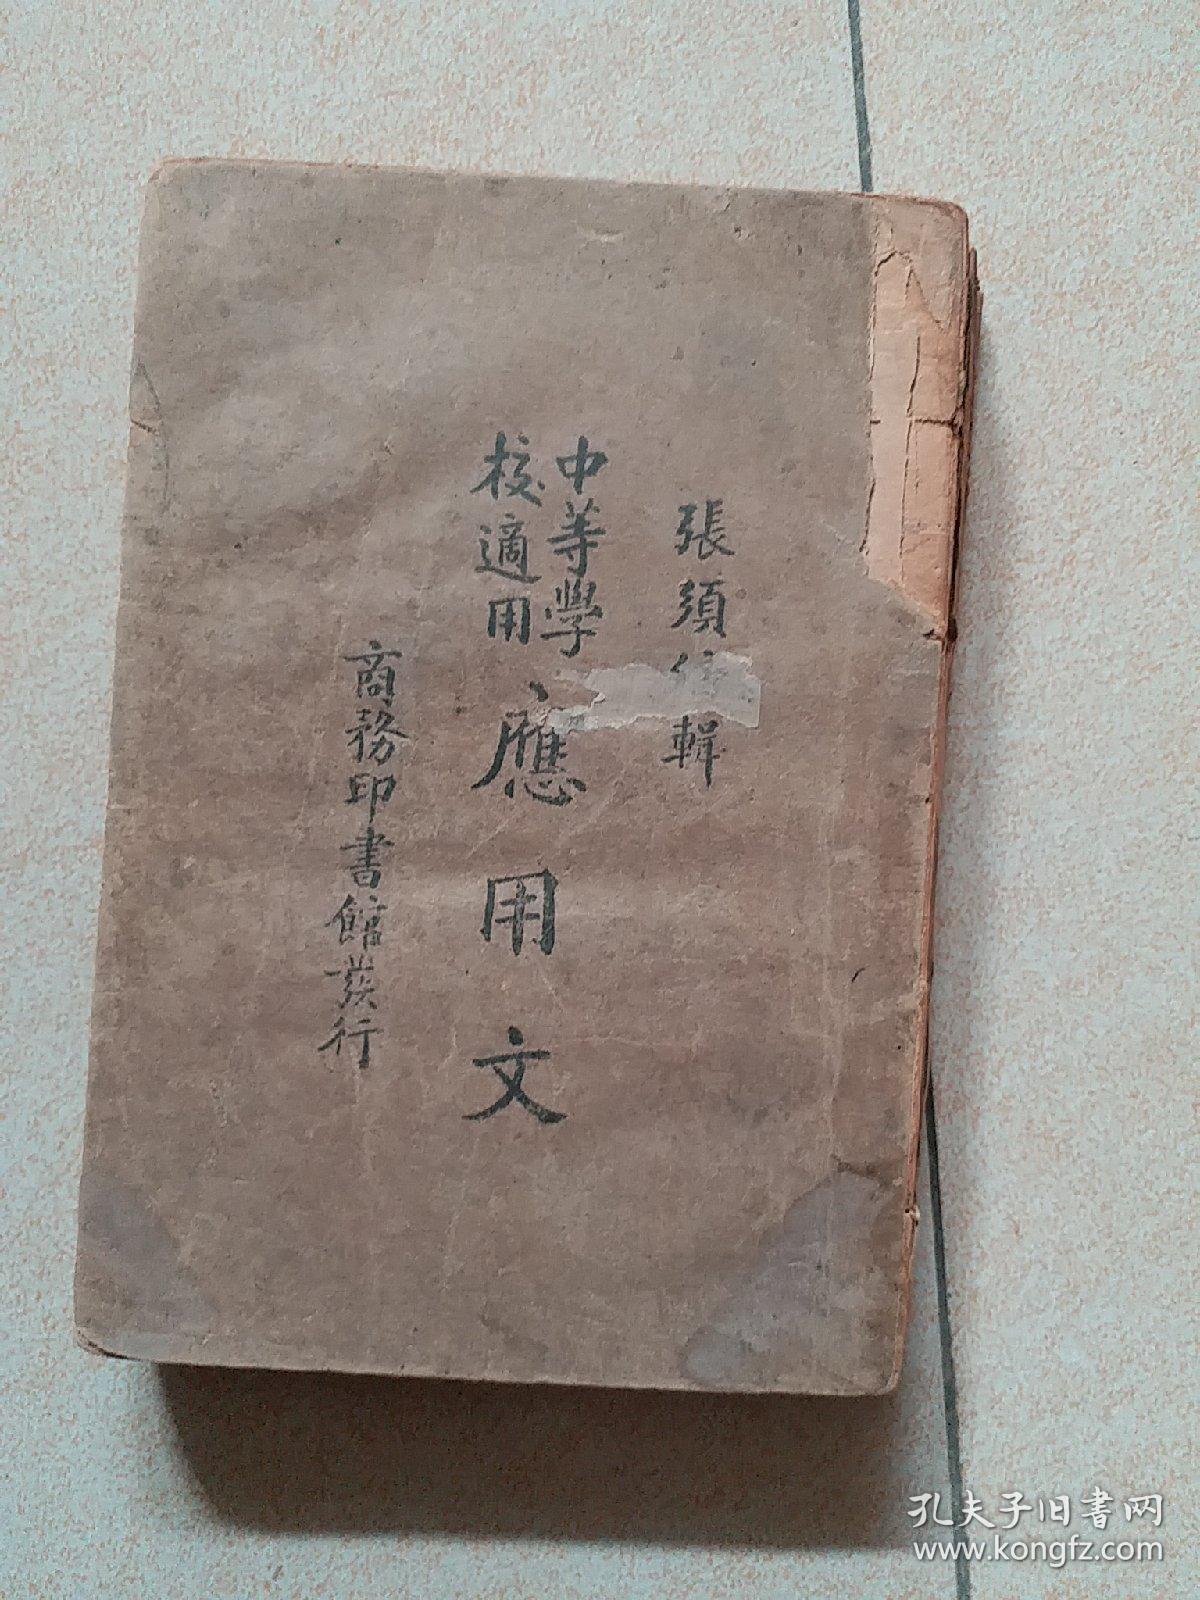 張須輯
中等學
校適用
應用文
商務印書館發行
孔夫子旧书网
www.kongfz.com